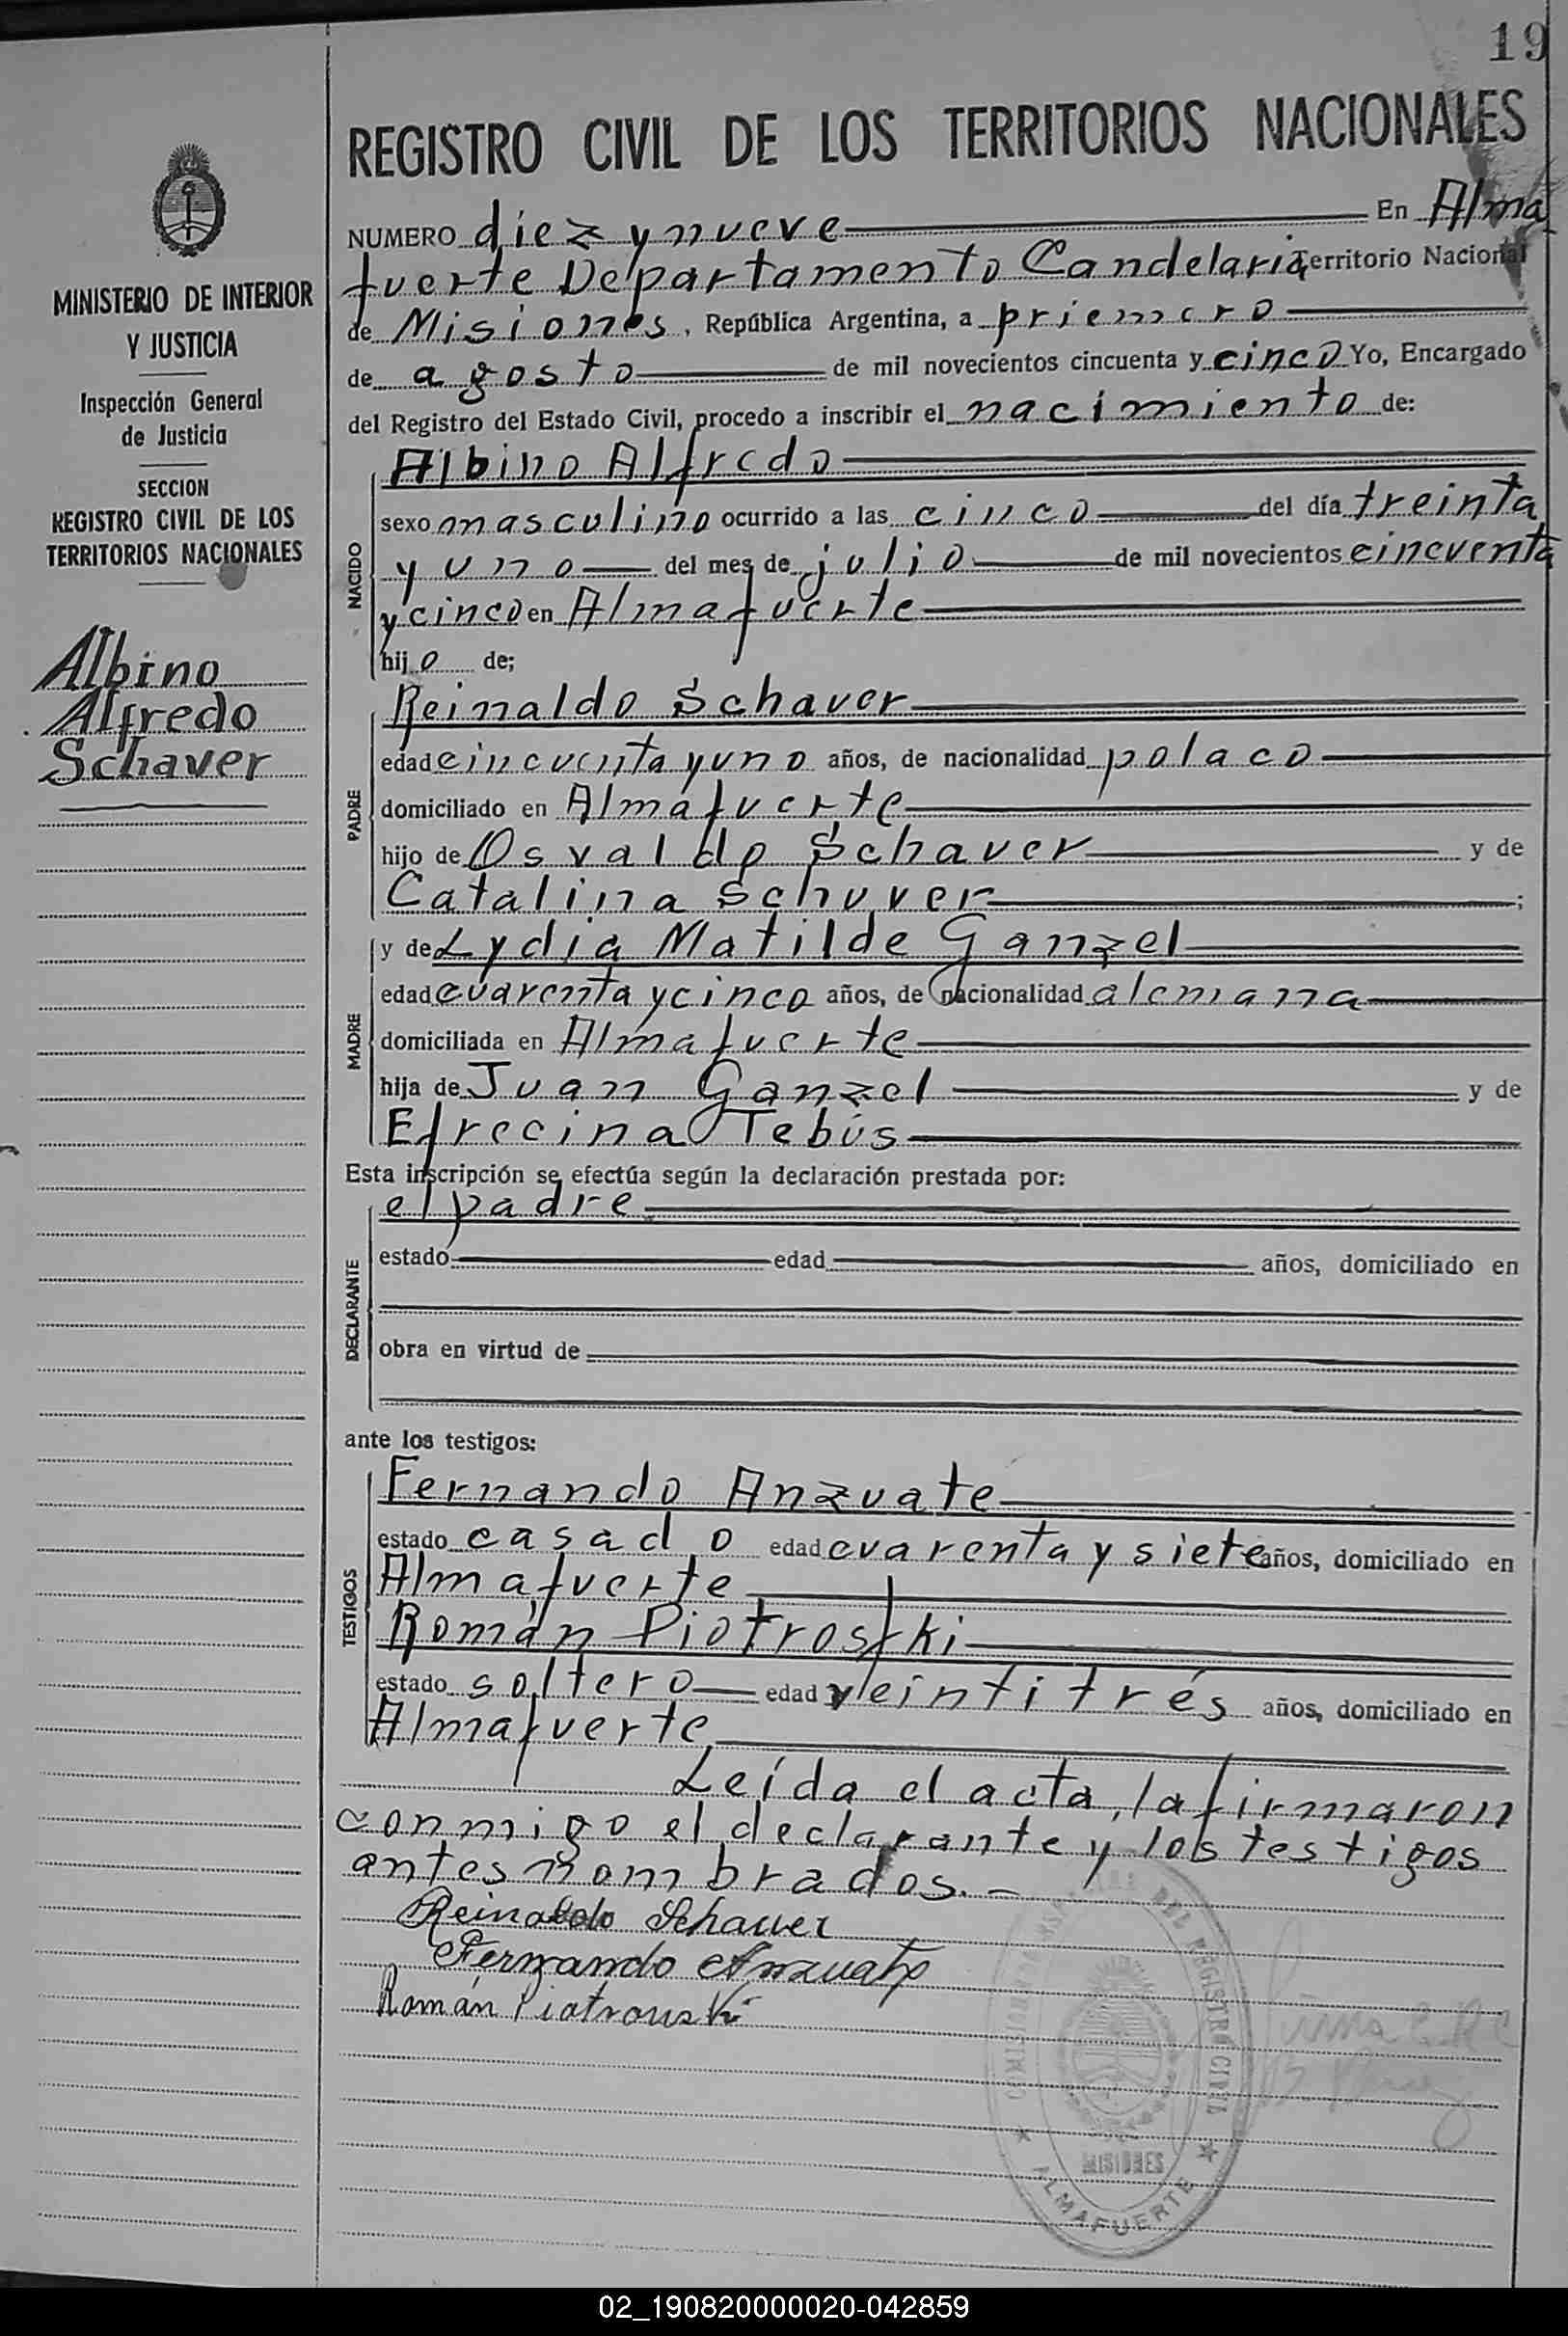 19
REGISTRO CIVIL DE LOS TERRITORIOS NACIONALES
MINISTERIO DE INTERIOR
Y JUSTICIA
Inspección General
de Justicia
SECCION
REGISTRO CIVIL DE LOS
TERRITORIOS NACIONALES
Albino
Alfredo
Schaver
NUMERO diez y nueve En Alma
fuerte Departamento Candelaria Territorio Nacional
de Misiones, República Argentina, a priemero
de agosto de mil novecientos cincuenta y cinco Yo, Encargado
del Registro del Estado Civil, procedo a inscribir el nacimiento de:
NACIDO
Albino Alfredo
sexo masculino ocurrido a las cinco del día treinta
y uno del mes de julio de mil novecientos cincuenta
y cinco en Almafuerte
hijo de;
PADRE
Reinaldo Schaver
edad cincuenta y uno años, de nacionalidad polaco
domiciliado en Almafuerte
hijo de Osvaldo Schaver y de
Catalina Schuver;
MADRE
y de Lydia Matilde Ganzel
edad cuarenta y cinco años, de nacionalidad alemana
domiciliada en Almafuerte
hija de Juan Ganzel y de
Efrecina Tebús
Esta inscripción se efectúa según la declaración prestada por:
DECLARANTE
el padre
estado edad años, domiciliado en
obra en virtud de
ante los testigos:
TESTIGOS
Fernando Anzuate
estado casado edad cuarenta y siete años, domiciliado en
Almafuerte
Román Piotroski
estado soltero edad veintitrés años, domiciliado en
Almafuerte
Leída el acta, la firmaron
conmigo el declarante y los testigos
antes nombrados.-
Reinaldo Schauer
Fernando Anzuate
Román Piatrouski
DEL REGISTRO CIVIL
MISIONES
ALMAFUERTE
02_190820000020-042859